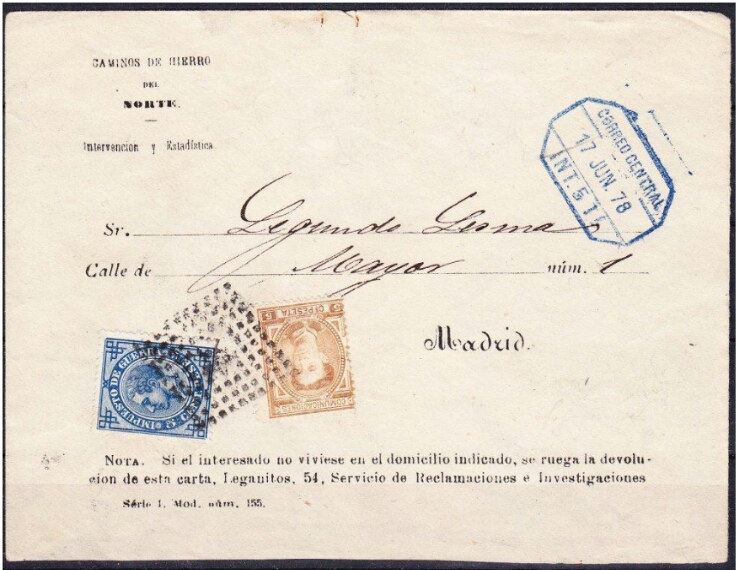 CAMINOS DE HIERRO
DEL
NORTE.
Intervencion y Estadística.
CORREO CENTRAL
17 JUN. 78
INT. 5 T
Sr. Segundo Lesma
Calle de Mayor núm. 1
Madrid.
IMPUESTO DE GUERRA
5 Cs PESETA
5 Cs PESETA 5
COMUNICACIONES
NOTA. Si el interesado no viviese en el domicilio indicado, se ruega la devolu-
cion de esta carta, Leganitos, 54, Servicio de Reclamaciones e Investigaciones
Série I, Mod. núm. 155.